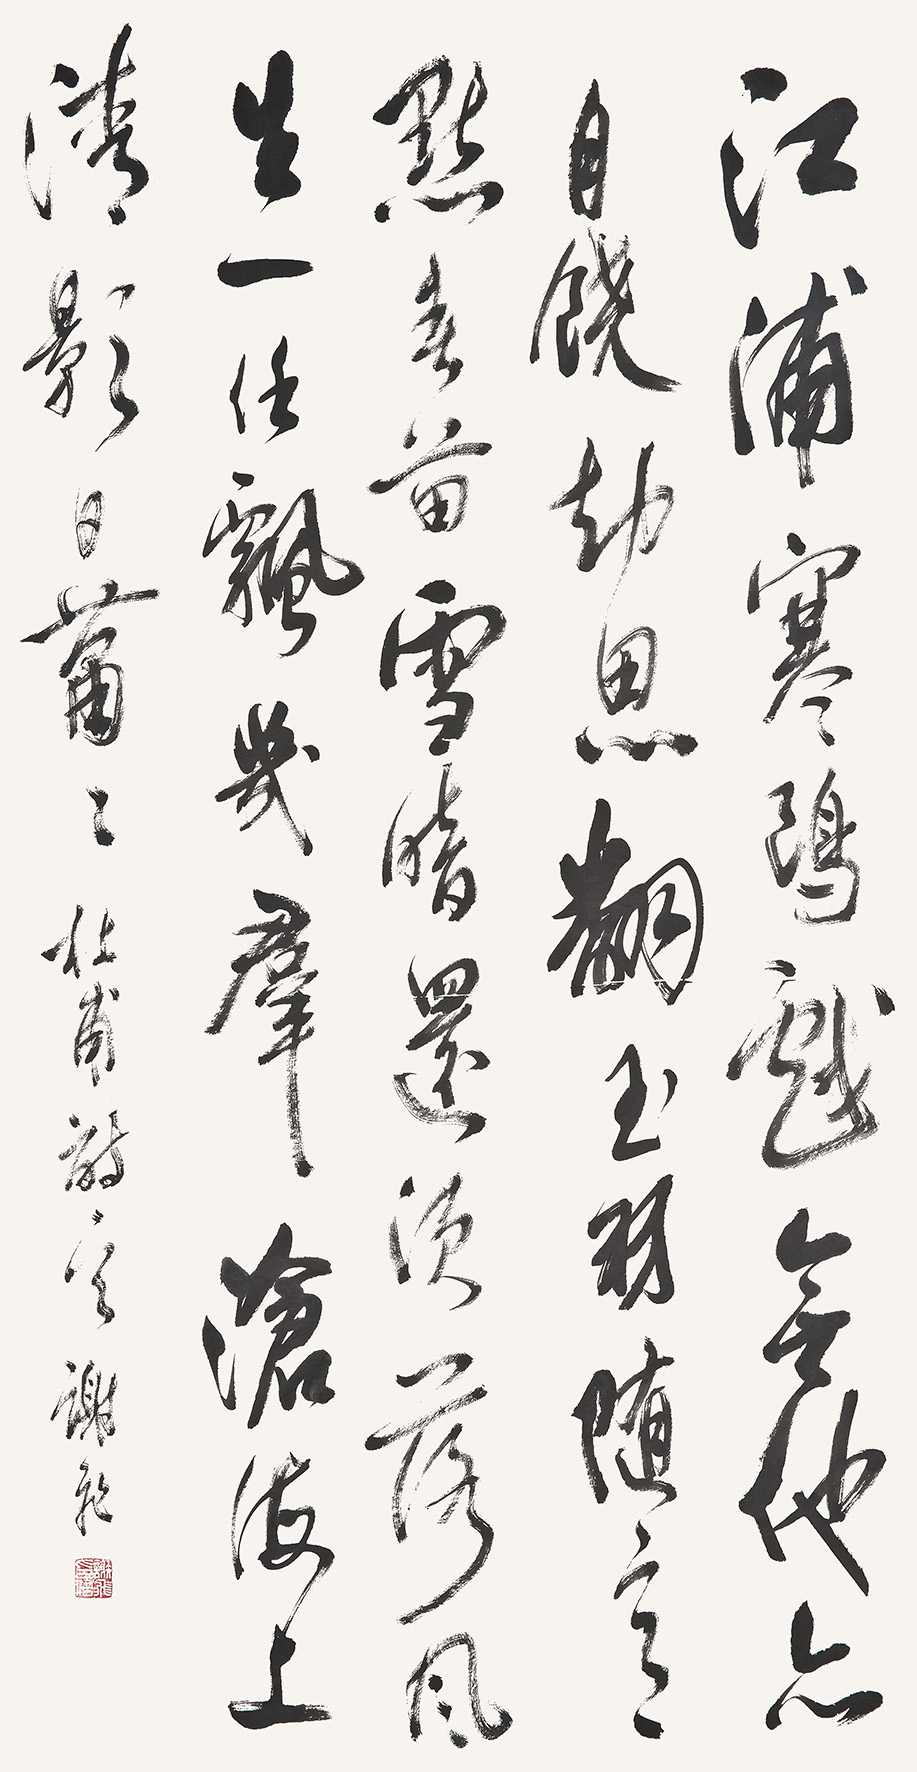 江浦寒鷗戲無他亦
自饒却思翻玉羽随意
點春苗雪暗還須落風
生一任飄幾羣滄海上
清影日蕭々 杜甫詩意 謝